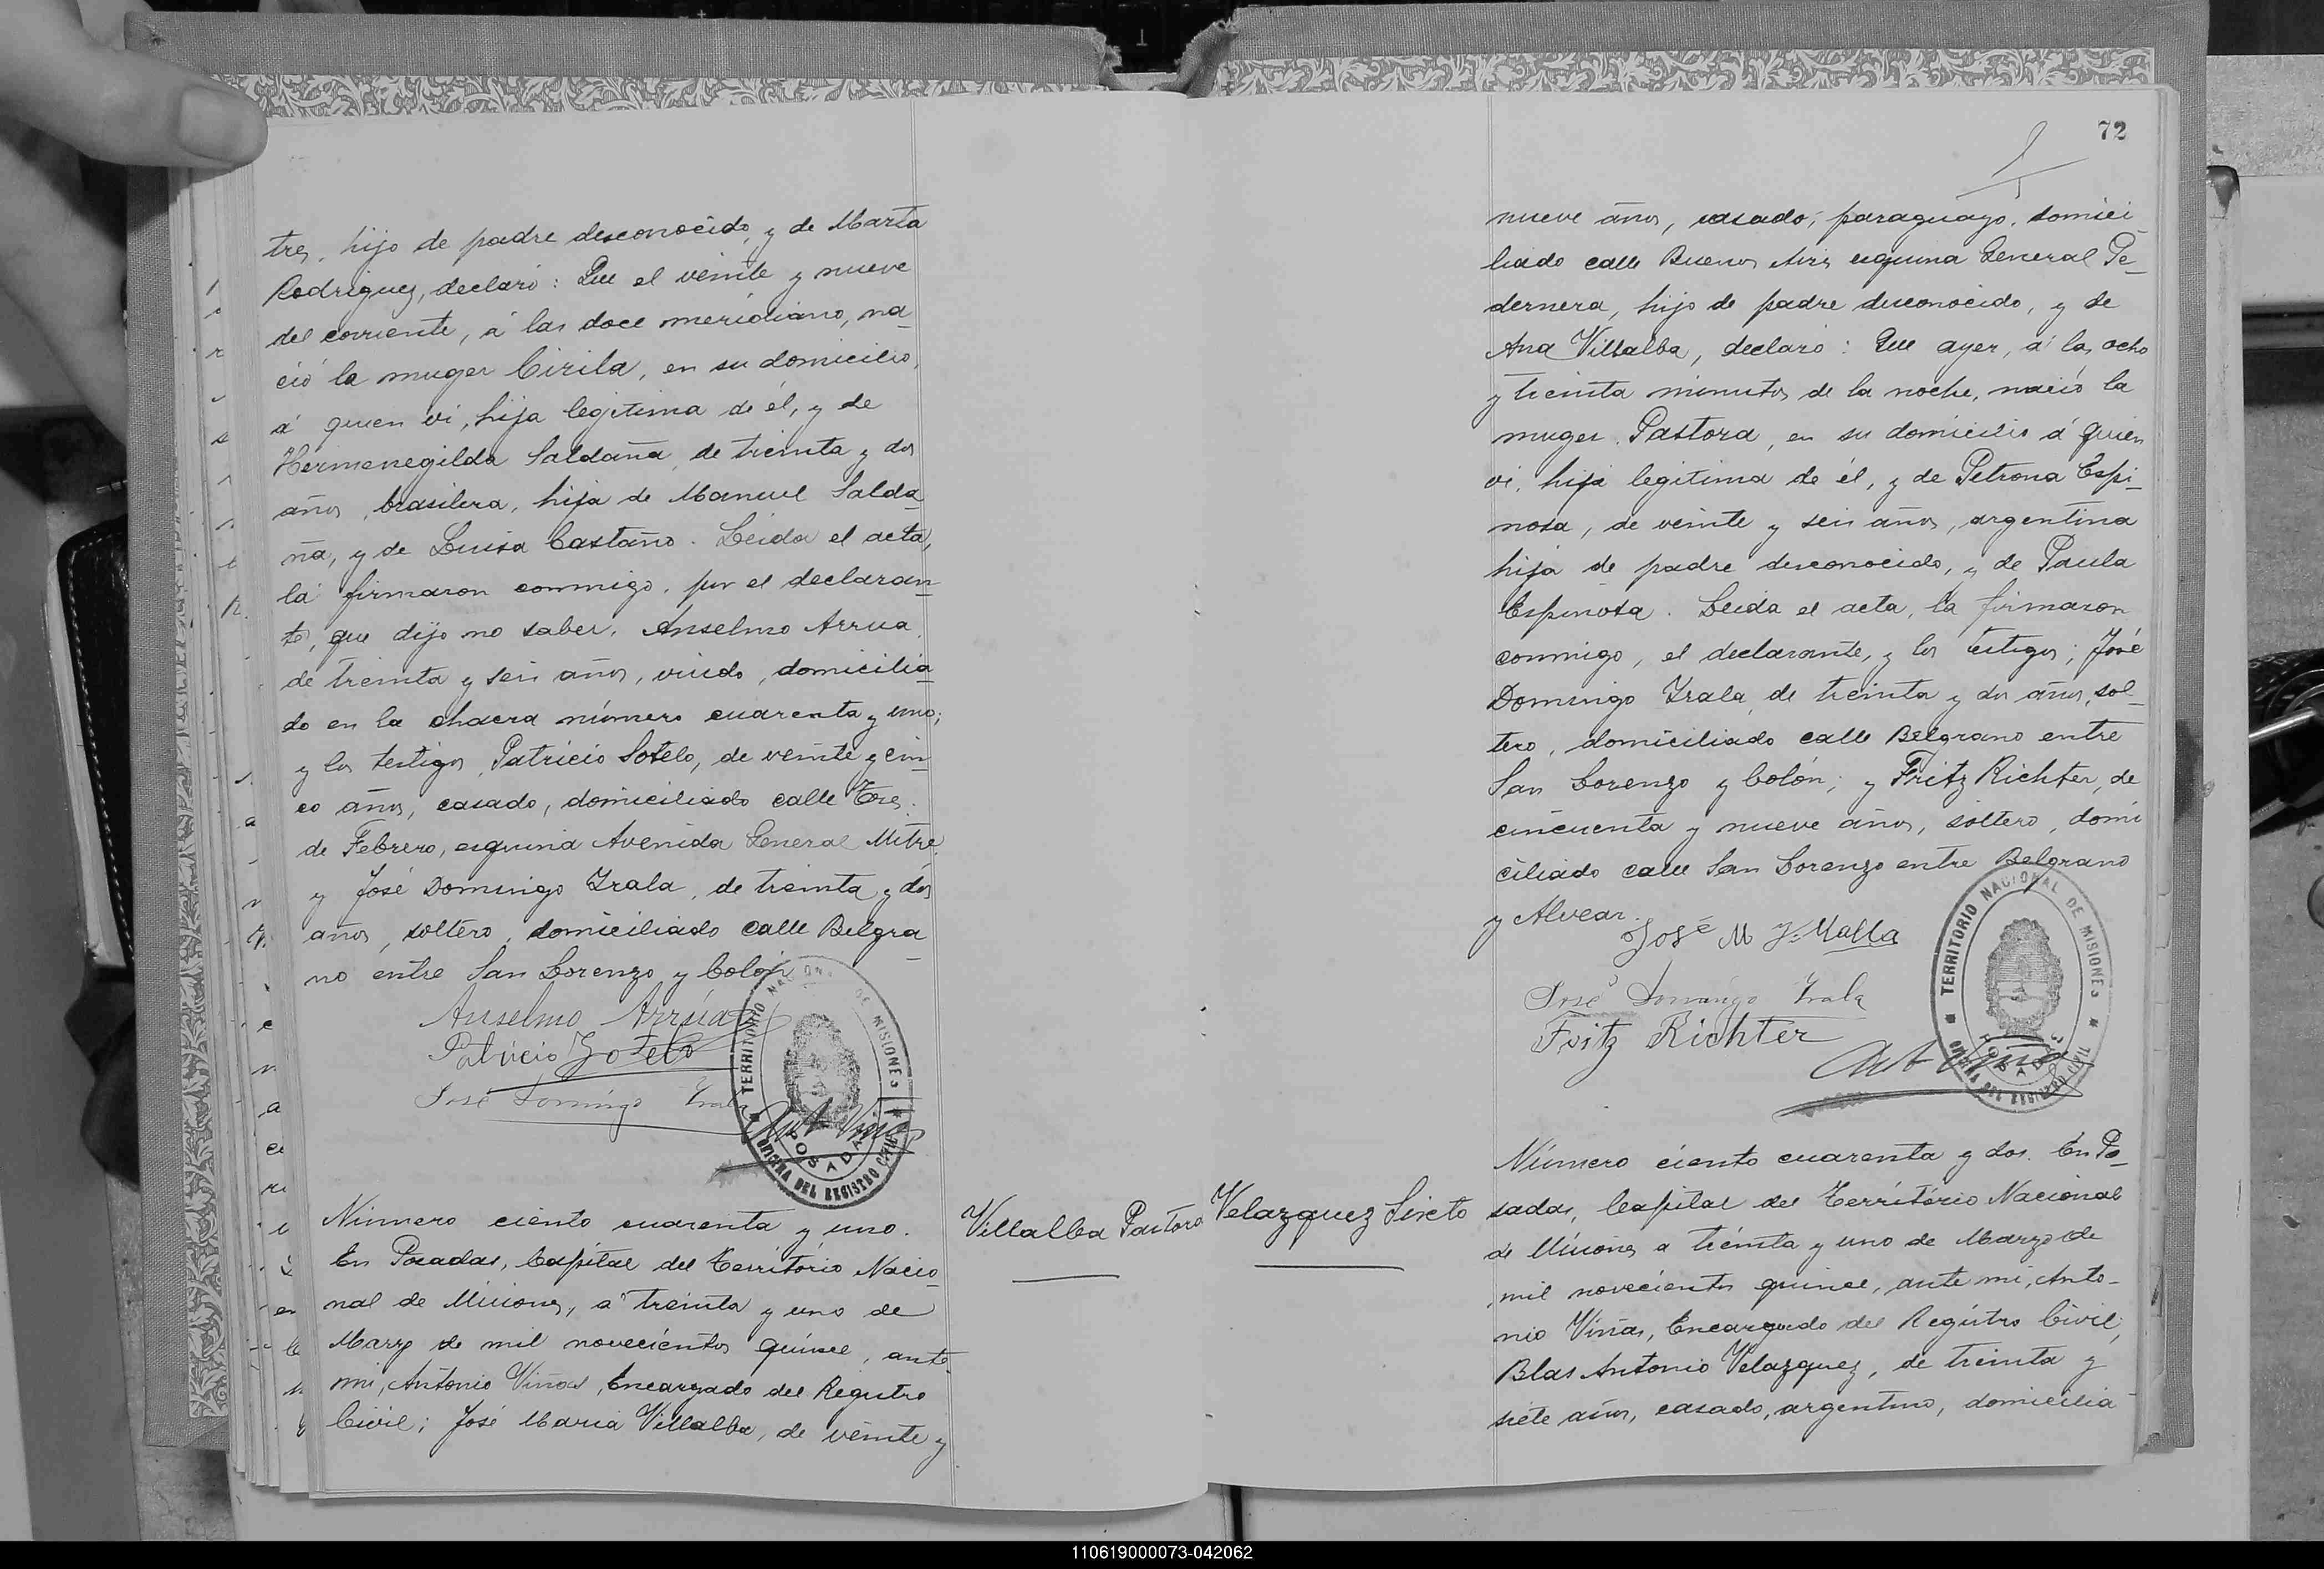 tres, hijo de padre desconocido, y de Marta
Rodriguez, declaró: Que el veinte y nueve
del corriente, á las doce meridiano, na_
ció la muger Cirila, en su domicilio,
á quien vi, hija legitima de él, y de
Hermenegilda Saldaña, de treinta y dos
años, brasilera, hija de Manuel Salda_
ña, y de Luisa Castaño. Leida el acta,
la firmaron conmigo, por el declaran_
te, que dijo no saber, Anselmo Arrua,
de treinta y seis años, viudo, domicilia_
do en la chacra número cuarenta y uno;
y los testigos, Patricio Sotelo, de veinte y cin_
co años, casado, domiciliado calle Tres
de Febrero, esquina Avenida General Mitre,
y José Domingo Irala, de treinta y dos
años, soltero, domiciliado calle Belgra_
no entre San Lorenzo y Colón
Anselmo Arrúa
Patricio Sotelo
José Domingo Irala
Ant Viñas
TERRITORIO NACIONAL DE MISIONES
POSADAS
OFICINA DEL REGISTRO CIVIL
Número ciento cuarenta y uno.
En Posadas, Capital del Território Nacio_
nal de Misiones, á treinta y uno de
Marzo de mil novecientos quince, ante
mi, Antonio Viñas, Encargado del Registro
Civil; José Maria Villalba, de veinte y
Villalba Pastora
72
nueve años, casado, paraguayo, domici_
liado calle Buenos Aires esquina General Pe_
dernera, hijo de padre desconocido, y de
Ana Villalba, declaró: Que ayer, á las ocho
y treinta minutos de la noche, nació la
muger Pastora, en su domicilio á quien
vi, hija legitima de él, y de Petrona Espi_
nosa, de veinte y seis años, argentina
hija de padre desconocido, y de Paula
Espinosa. Leida el acta, la firmaron
conmigo, el declarante, y los testigos; José
Domingo Irala, de treinta y dos años, sol_
tero, domiciliado calle Belgrano entre
San Lorenzo y Colón; y Fritz Richter, de
cincuenta y nueve años, soltero, domi
ciliado calle San Lorenzo entre Belgrano
y Alvear.
José M Villalba
José Domingo Irala
Fritz Richter
Ant Viñas
TERRITORIO NACIONAL DE MISIONES
POSADAS
OFICINA DEL REGISTRO CIVIL
Velazquez Sixto
Número ciento cuarenta y dos. En Po_
sadas, Capital del Território Nacional
de Misiones a treinta y uno de Marzo de
mil novecientos quince, ante mi, Anto_
nio Viñas, Encargado del Registro Civil;
Blas Antonio Velazquez, de treinta y
siete años, casado, argentino, domicilia
110619000073-042062